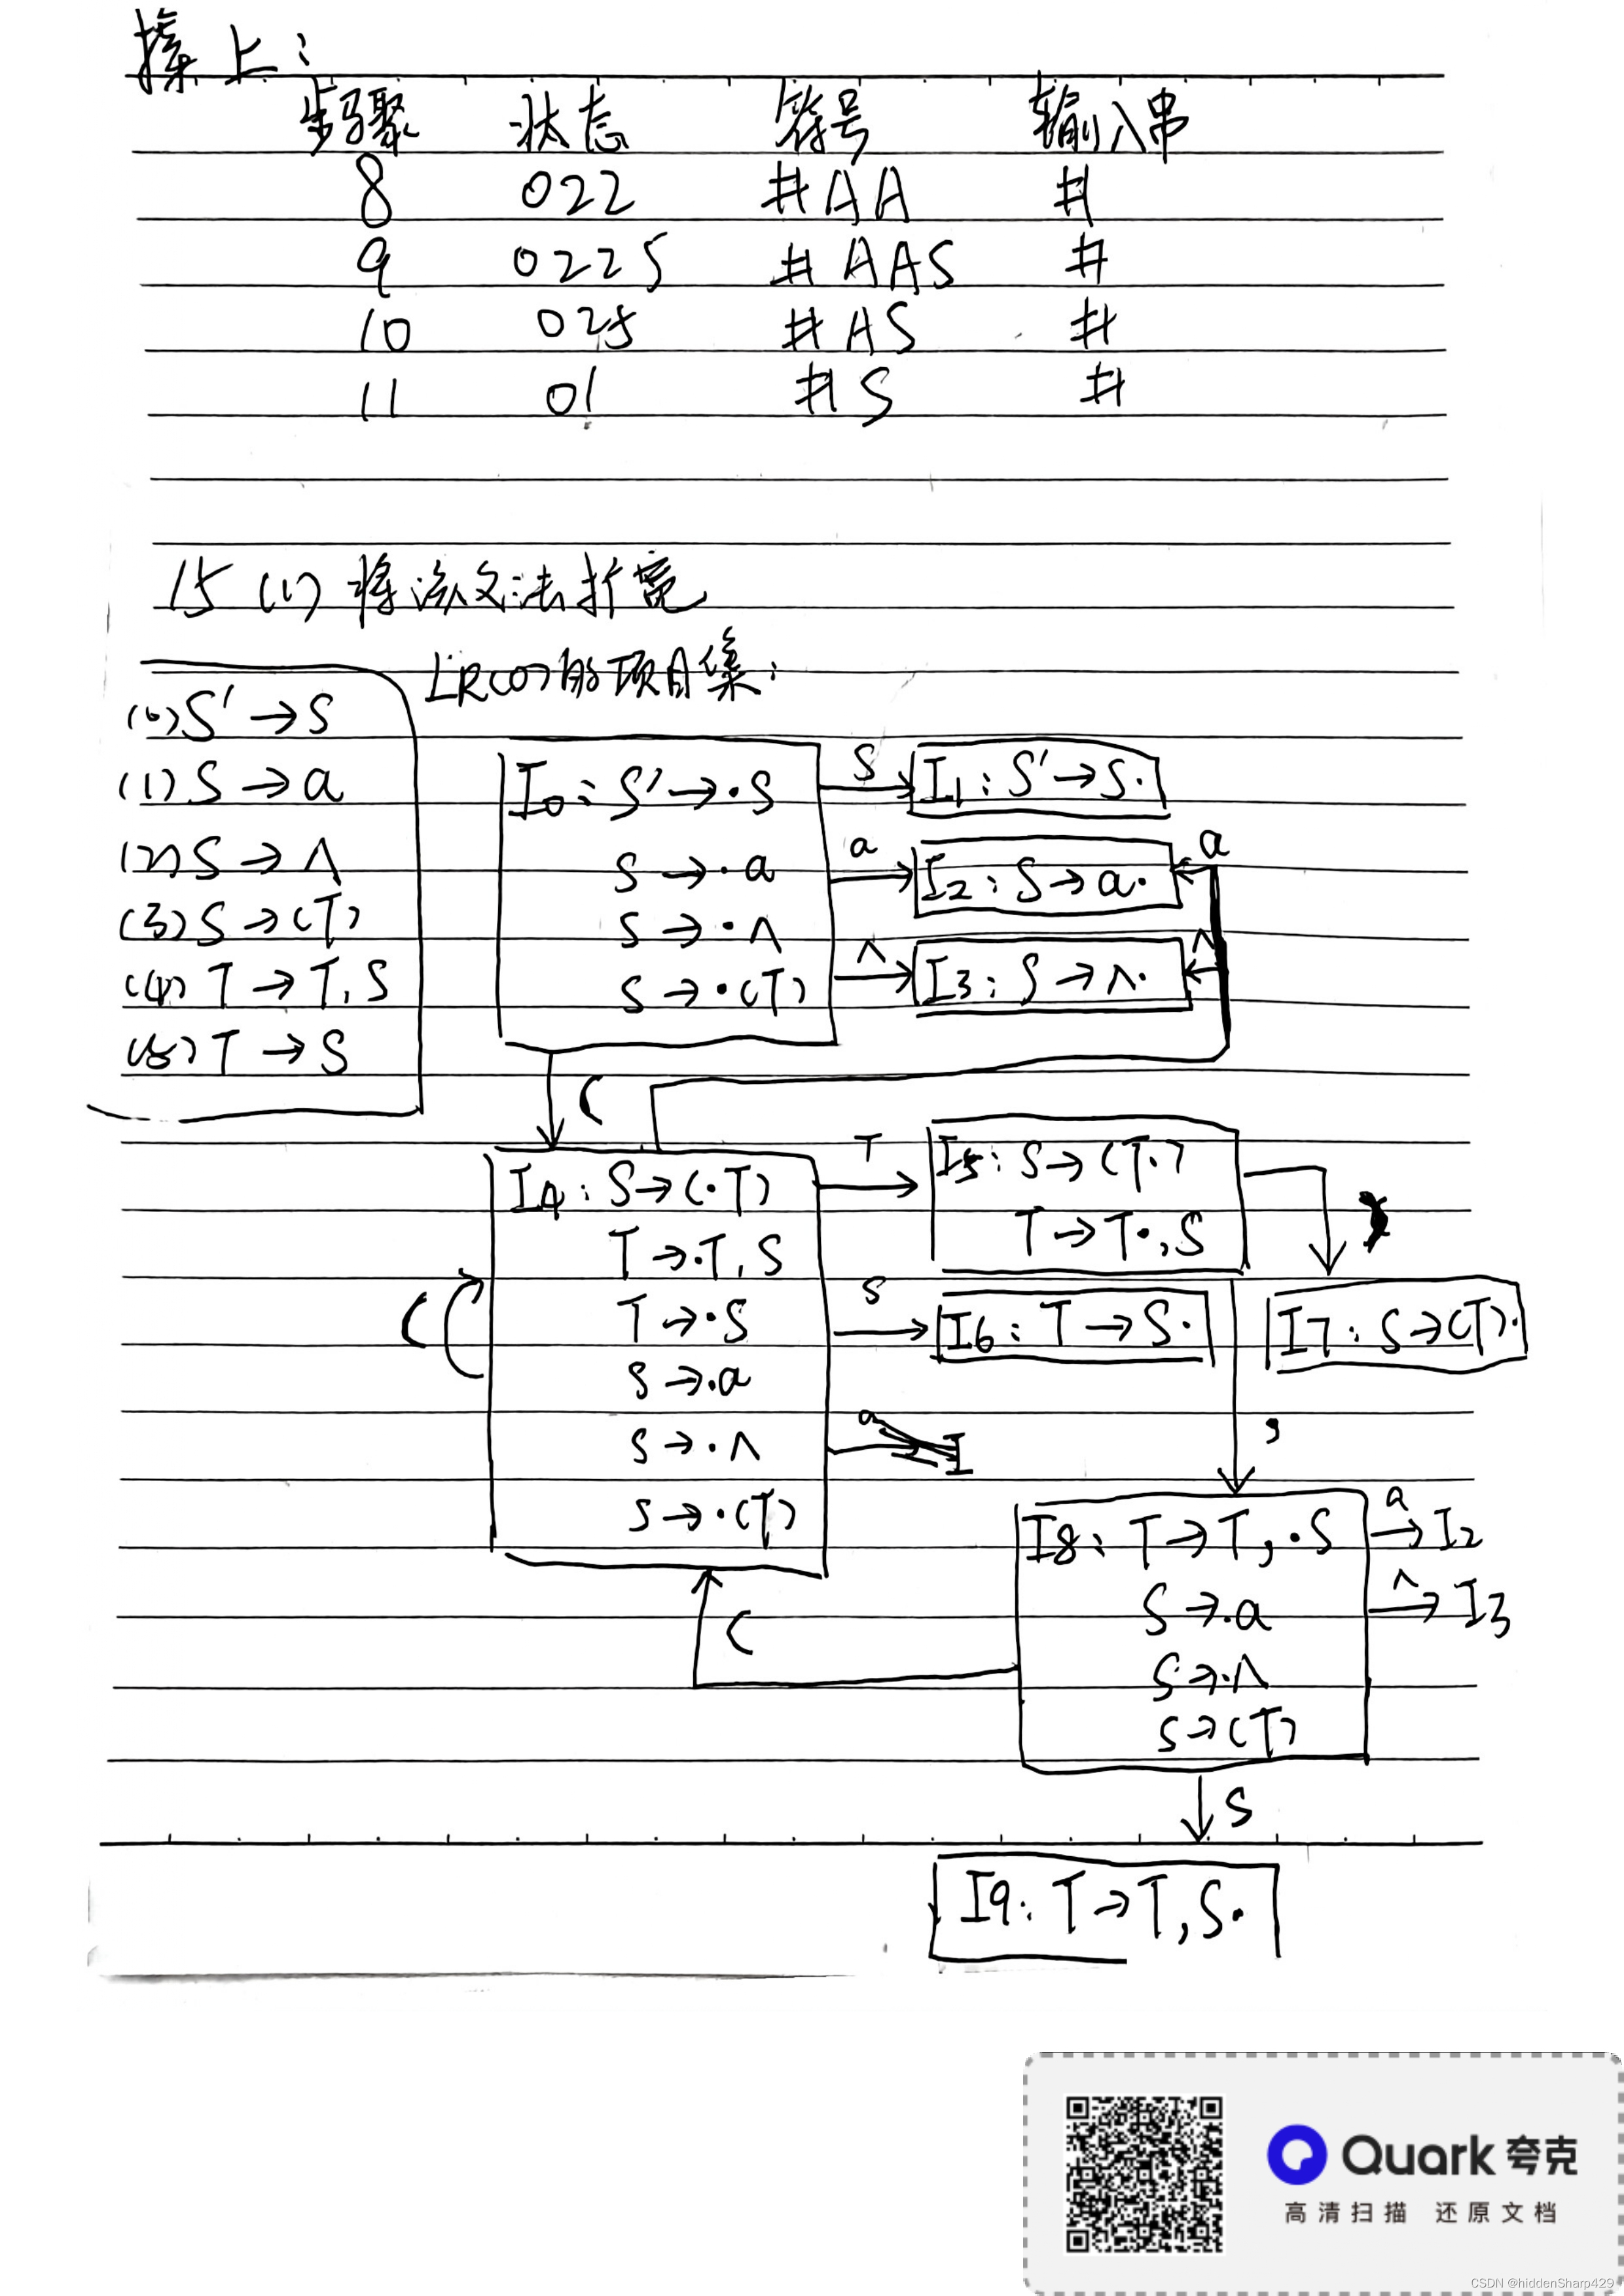 接上:
步骤 状态 符号 输入串
8 022 #AA #
9 0225 #AAS #
10 025 #AS #
11 01 #S #
15 (1) 将该文法拓宽
LR(0)的项目集:
(0)S'→S
(1)S→a
(2)S→∧
(3)S→(T)
(4)T→T,S
(5)T→S
I0:S'→·S
S→·a
S→·∧
S→·(T)
S
I1:S'→S·
a
I2:S→a·
a
∧
I3:S→∧·
∧
(
I4:S→(·T)
T→·T,S
T→·S
S→·a
S→·∧
S→·(T)
(
T
I5:S→(T·)
T→T·,S
)
S
I6:T→S·
I7:S→(T)·
,
a
I
I8:T→T,·S
S→·a
S→·∧
S→(T)
a
→I2
∧
→I3
(
S
I9:T→T,S·
Quark 夸克
高清扫描 还原文档
CSDN @hiddenSharp429